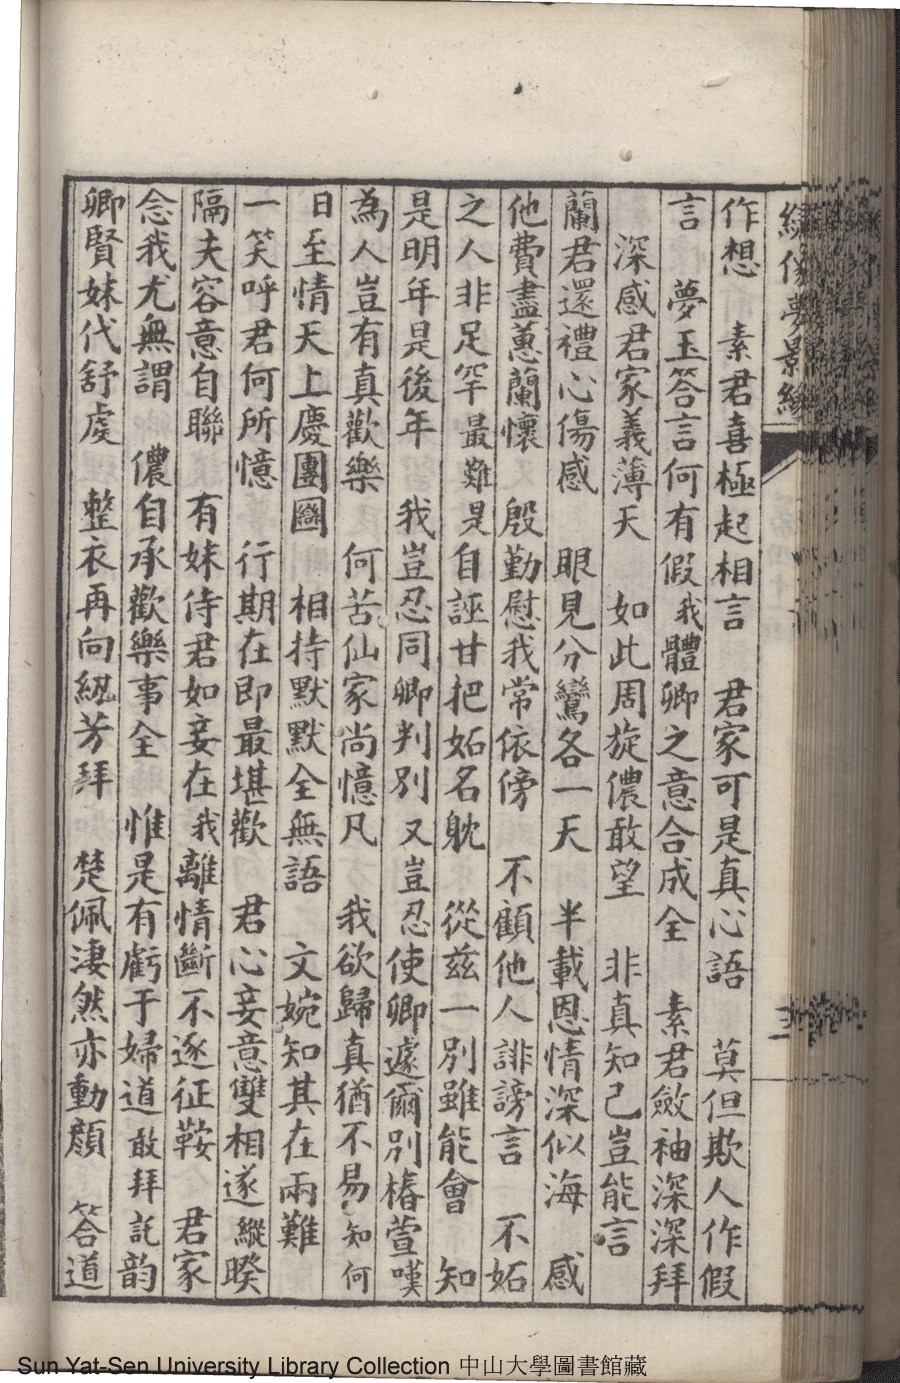 繡像夢影緣
作想　素君喜極起相言　君家可是真心語　莫但欺人作假
言　夢玉答言何有假我體卿之意合成全　素君斂袖深深拜
深感君家義薄天　如此周旋儂敢望　非真知己豈能言
蘭君還禮心傷感　眼見分鸞各一天　半載恩情深似海　感
他費盡蕙蘭懷　殷勤慰我常依傍　不顧他人誹謗言　不妬
之人非足罕最難是自誣甘把妬名躭　從茲一別雖能會　知
是明年是後年　我豈忍同卿判別　又豈忍使卿遽爾別椿萱嘆
為人豈有真歡樂　何苦仙家尚憶凡　我欲歸真猶不易知何
日至情天上慶團圞　相持默默全無語　文婉知其在兩難
一笑呼君何所憶　行期在即最堪歡　君心妾意雙相遂縱暌
隔夫容意自聯　有妹侍君如妾在我離情斷不逐征鞍　君家
念我尤無謂　儂自承歡樂事全　惟是有虧于婦道敢拜託韵
卿賢妹代舒虔　整衣再向紉芳拜　楚佩淒然亦動顏　答道
Sun Yat-Sen University Library Collection 中山大學圖書館藏